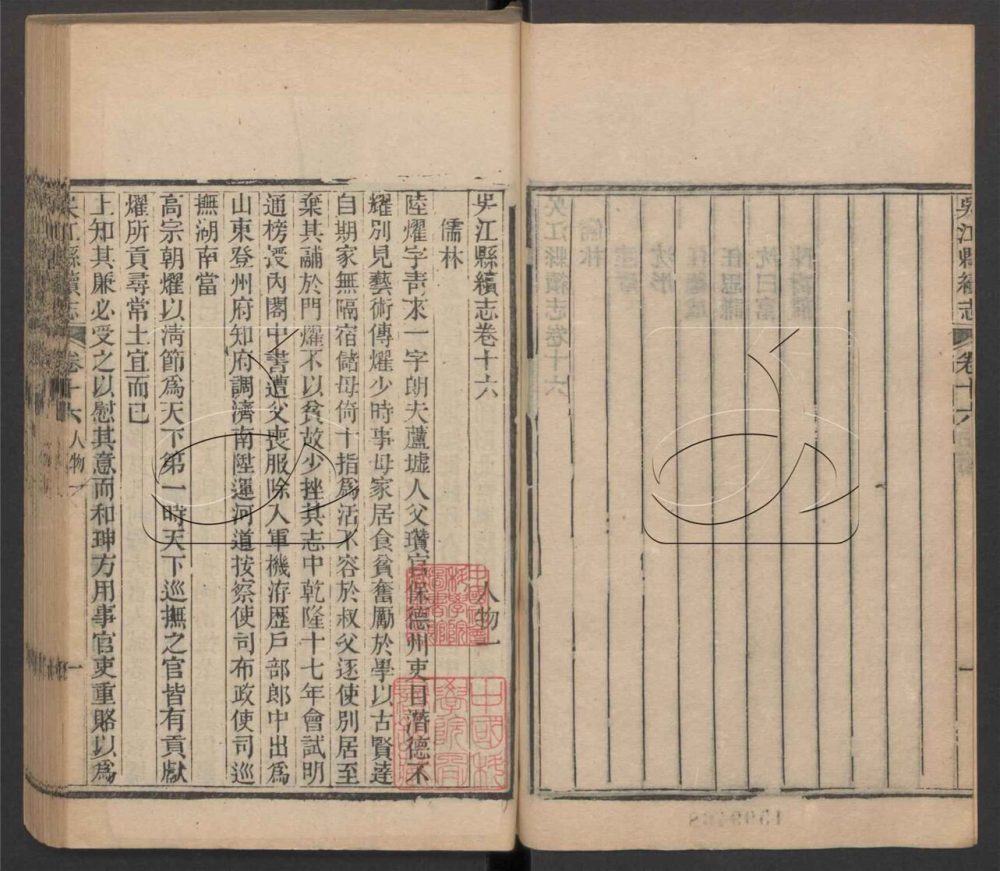 吳江縣續志
卷十六
一
吳江縣續志卷十六
人物一
儒林
陸燿字靑來一字朗夫蘆墟人父瓚官保德州吏目潛德不
耀別見藝術傳燿少時事母家居食貧奮勵於學以古賢達
自期家無隔宿儲母倚十指爲活不容於叔父逐使別居至
棄其誧於門燿不以貧故少挫其志中乾隆十七年會試明
通榜授內閣中書遭父喪服除入軍機洊歷戶部郎中出爲
山東登州府知府調濟南陞運河道按察使司布政使司巡
撫湖南當
高宗朝燿以淸節爲天下第一時天下巡撫之官皆有貢獻
燿所貢尋常土宜而已
上知其廉必受之以慰其意而和珅方用事官吏重賂以爲
吳江縣續志
卷十六
人物一
一